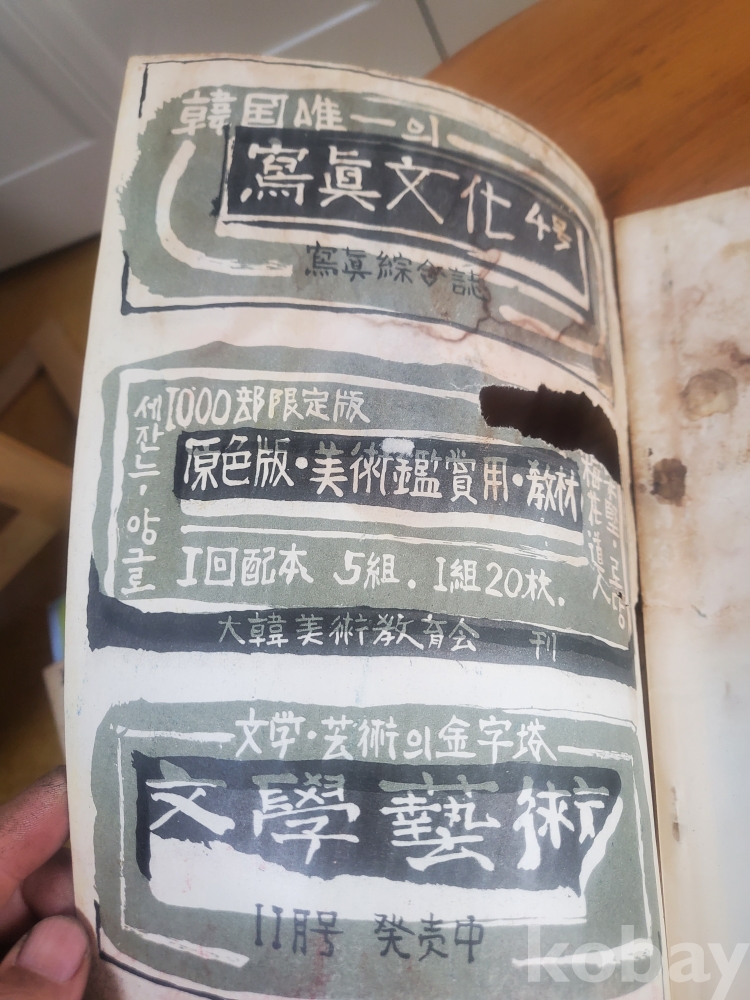 韓国唯一의
寫眞文化 4号
寫眞綜合誌
세잔느·앙그르
1000部限定版
原色版·美術鑑賞用·敎材
I回配本 5組. I組20枚.
大韓美術敎育会 刊
文学·芸術의金字塔
文學藝術
11月号 発売中
kobay